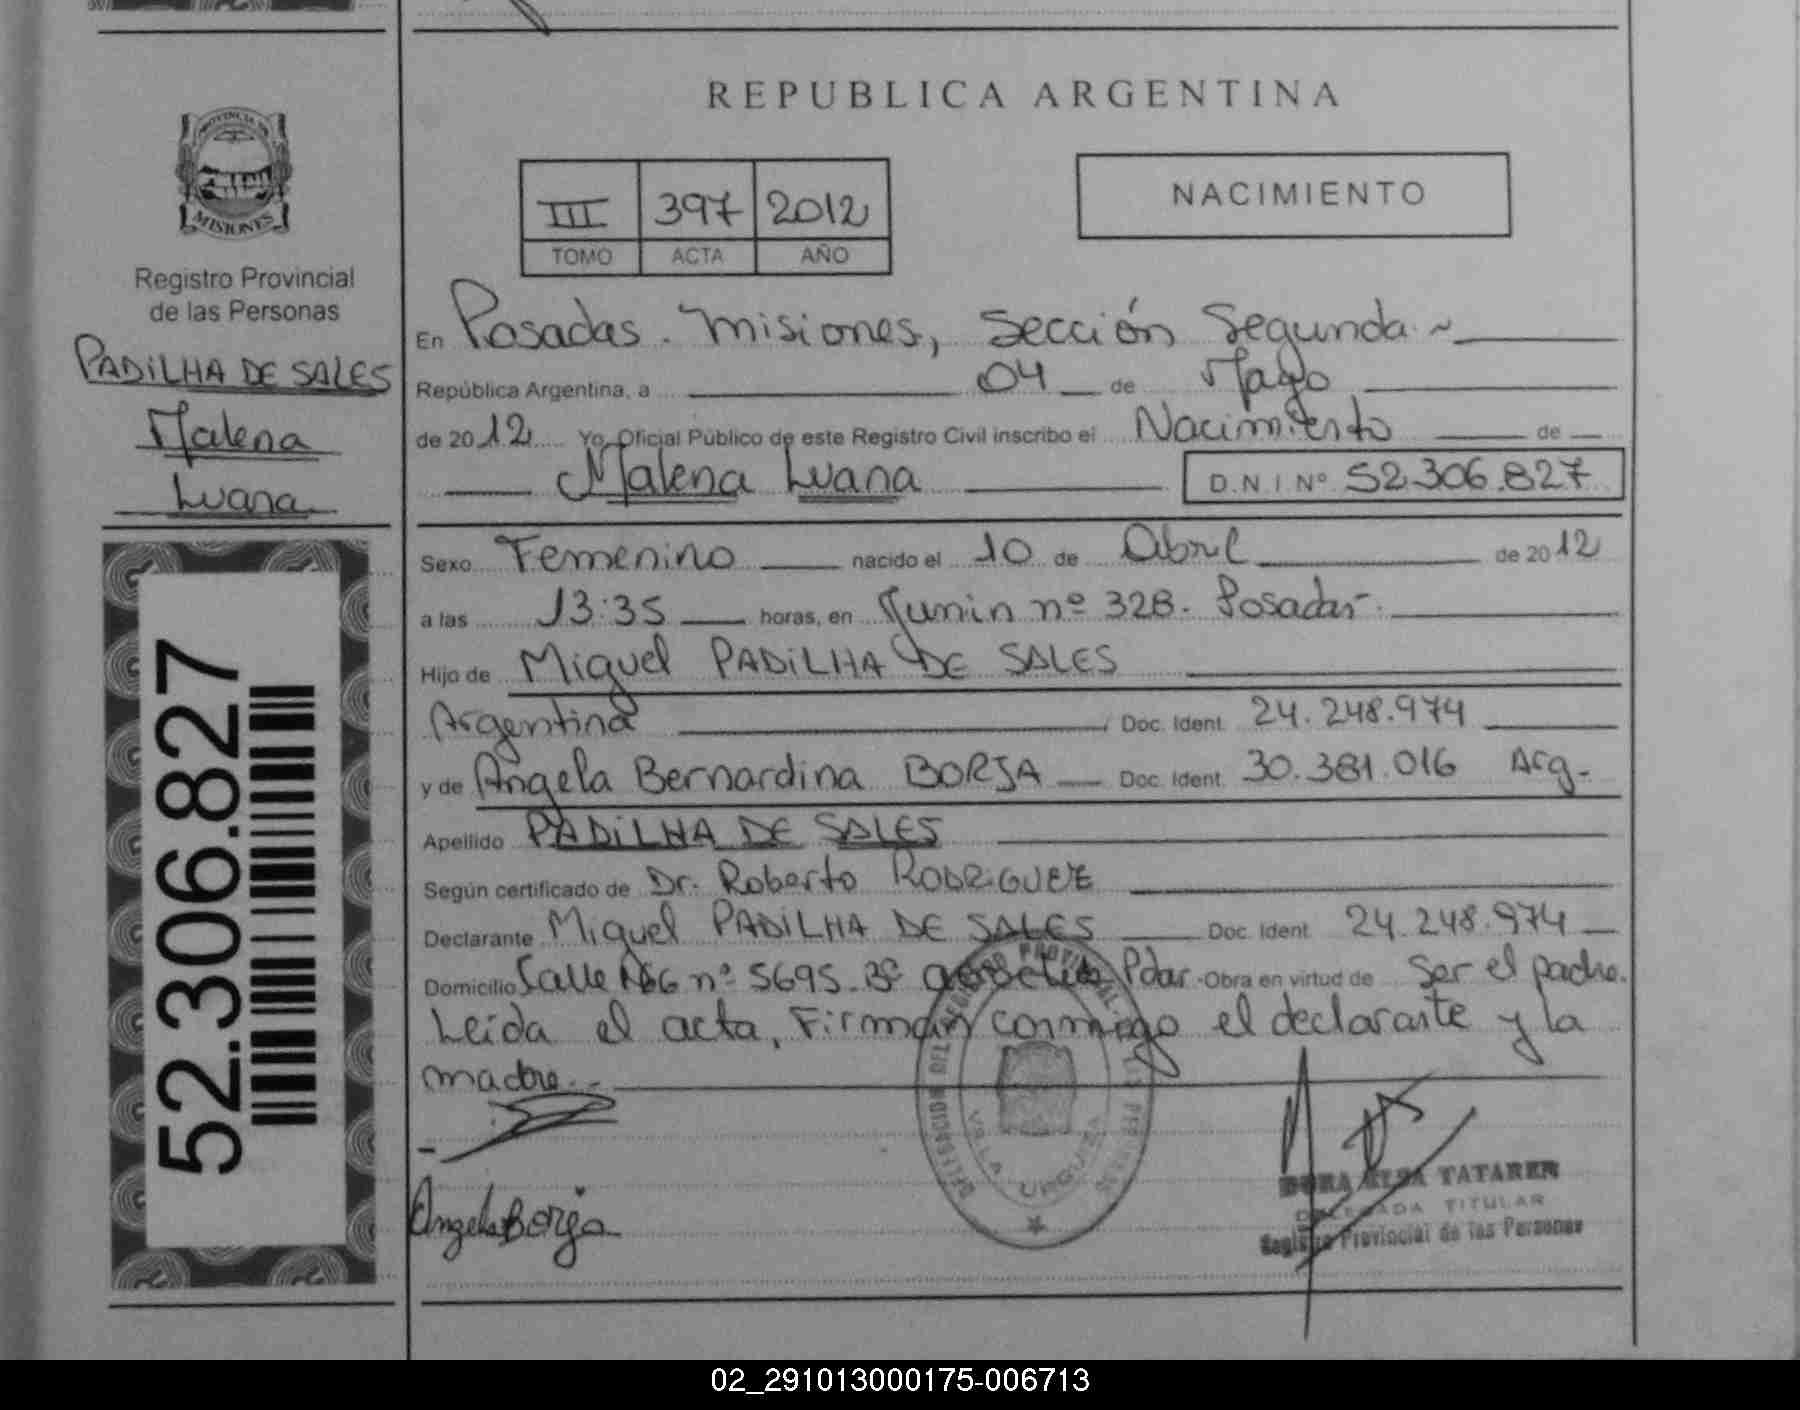 REPUBLICA ARGENTINA
PROVINCIA DE
MISIONES
Registro Provincial
de las Personas
PADILHA DE SALES
Malena
Luana
52.306.827
III 397 2012
TOMO ACTA AÑO
NACIMIENTO
En Posadas. Misiones, Sección Segunda
República Argentina, a 04 de Mayo
de 2012 Yo, Oficial Público de este Registro Civil inscribo el Nacimiento de
Malena Luana D.N.I Nº 52.306.827
Sexo Femenino nacido el 10 de Abril de 2012
a las 13:35 horas, en Junin nº 328. Posadas.
Hijo de Miguel PADILHA DE SALES
Argentina Doc. Ident. 24.248.974
y de Angela Bernardina BORJA Doc. Ident. 30.381.016 Arg.
Apellido PADILHA DE SALES
Según certificado de Dr. Roberto RODRIGUEZ
Declarante Miguel PADILHA DE SALES Doc. Ident. 24.248.974
Domicilio Calle nº 5695. Bº Pdas. Obra en virtud de Ser el padre.
Leida el acta, Firman conmigo el declarante y la
madre.
Angela Borja
DELEGACION DEL REGISTRO PROVINCIAL DE LAS PERSONAS
VILLA URQUIZA
DORA ELSA TATAREN
DELEGADA TITULAR
Registro Provincial de las Personas
02_291013000175-006713